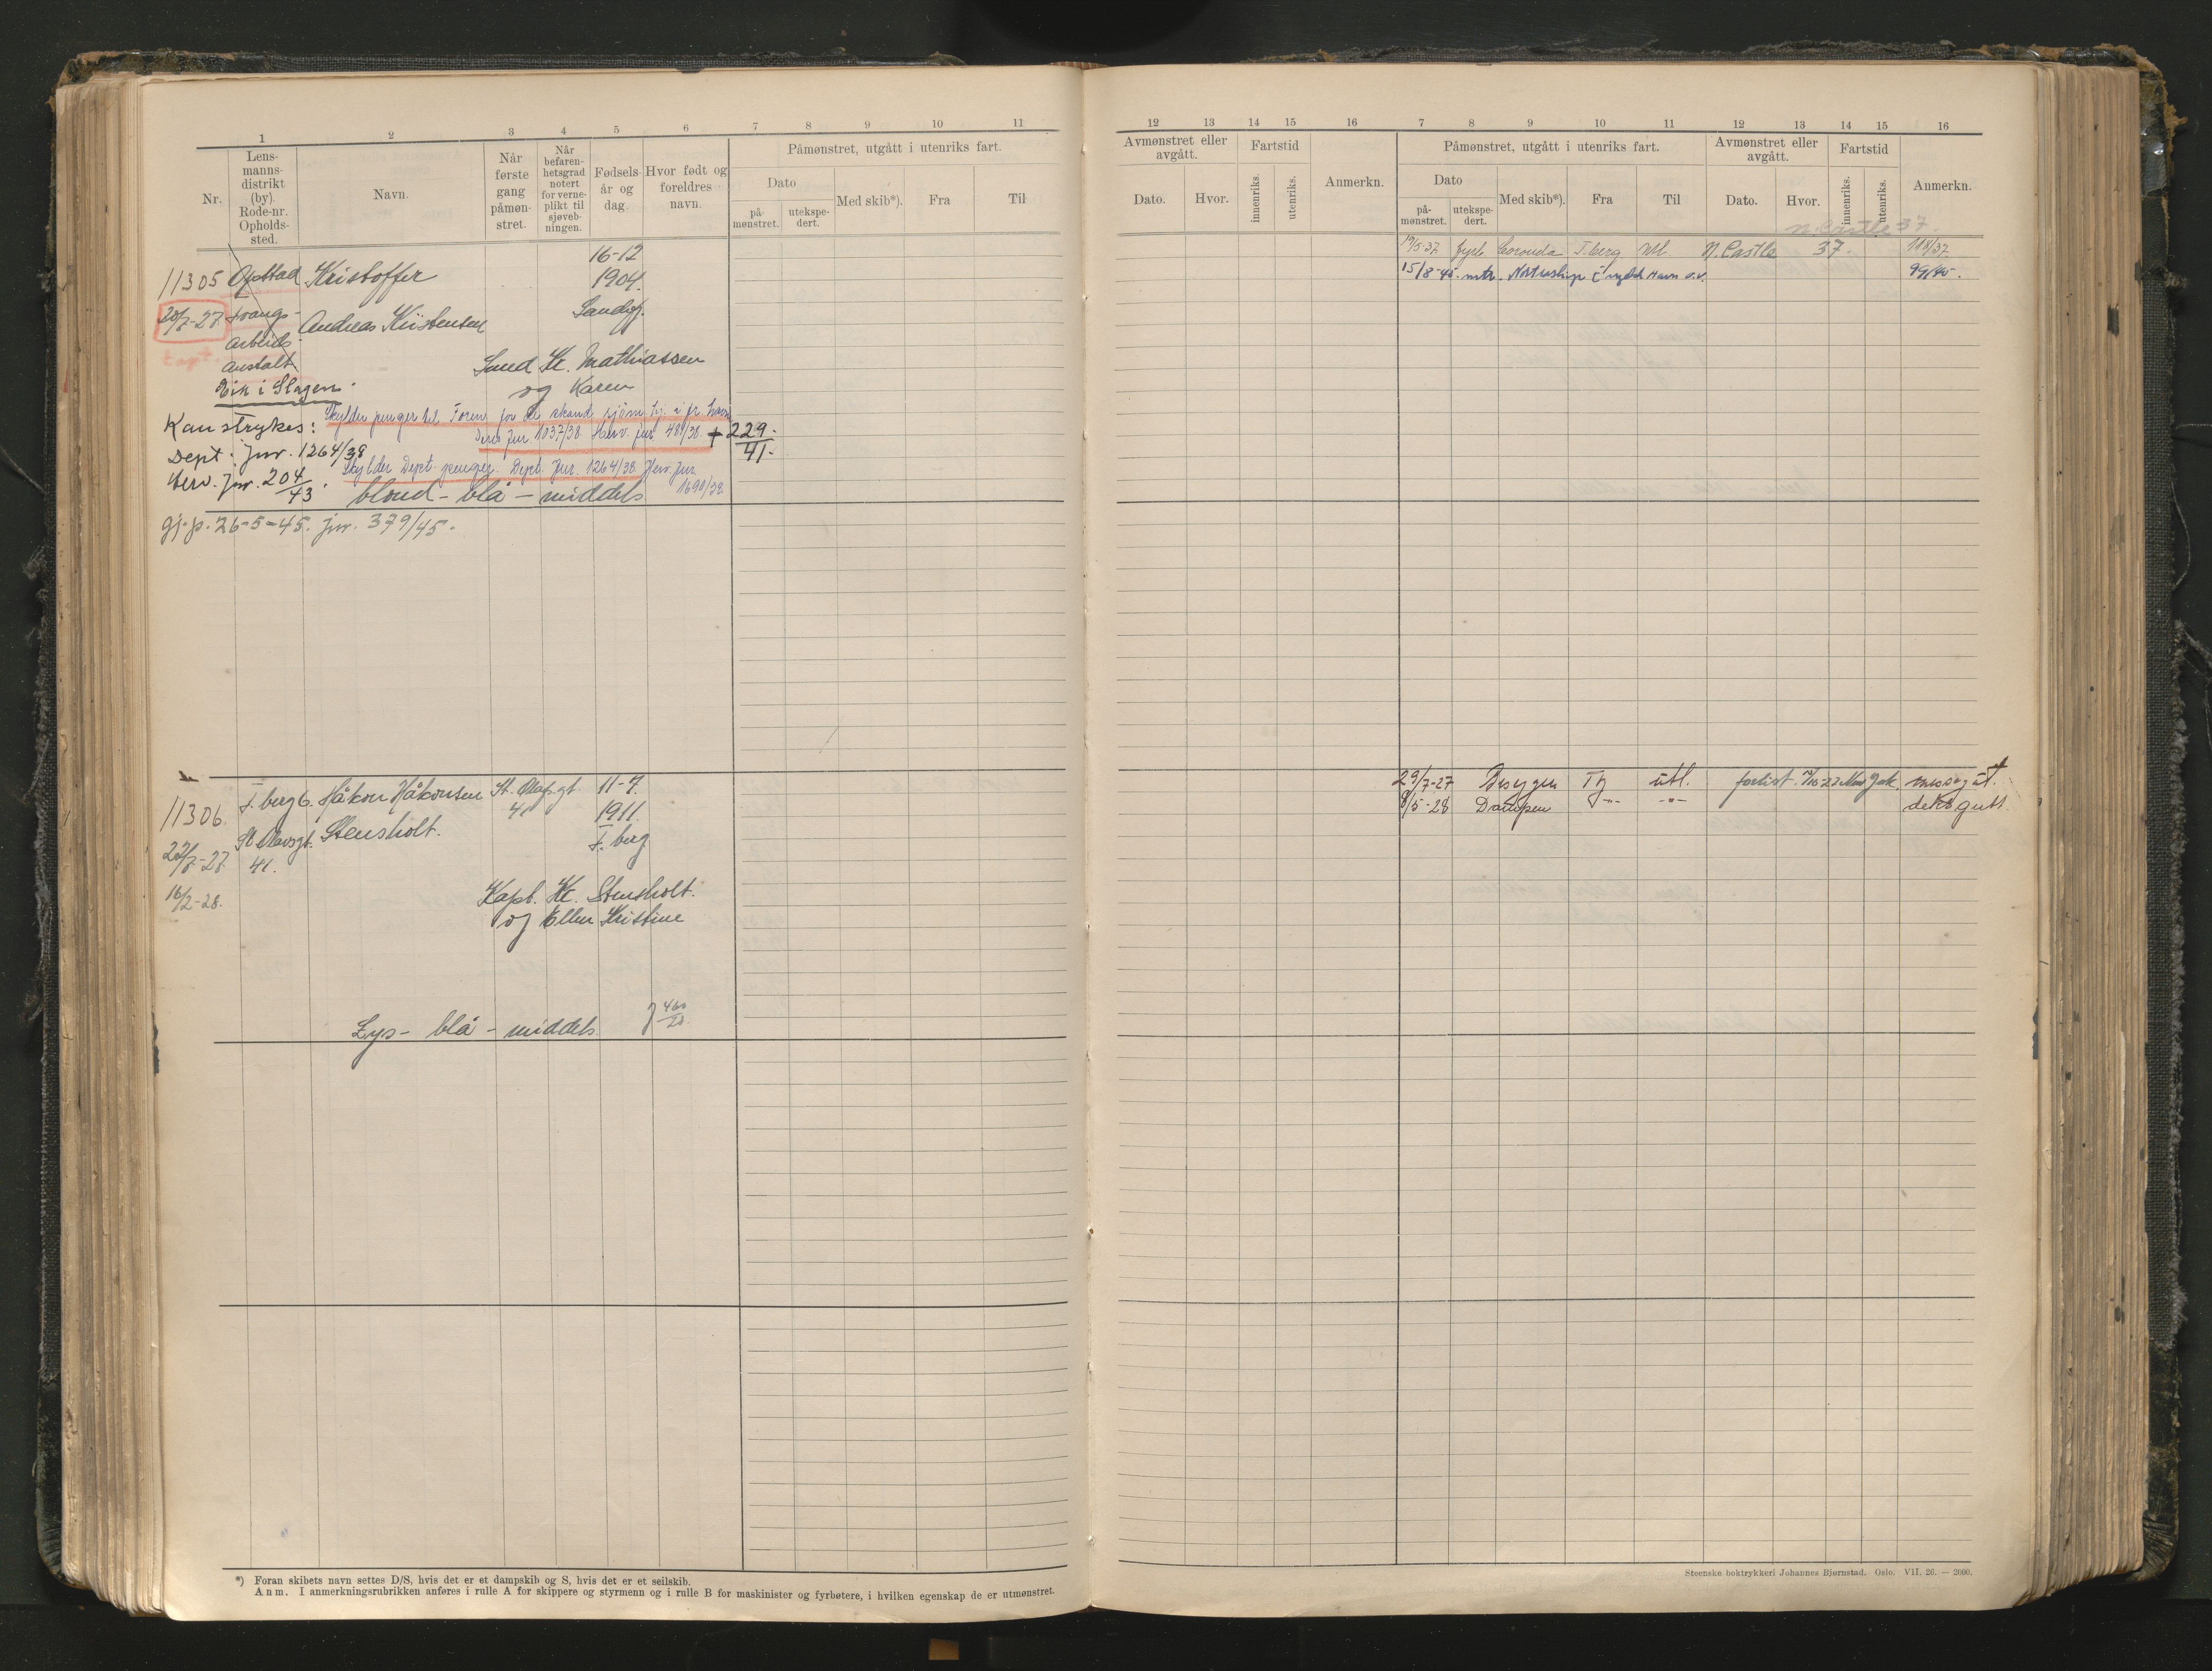 1 2 3 4 5 6 7 8 9 10 11
Nr. Lens-manns-distrikt (by). Rode-nr. Opholds-sted. Navn. Når første gang påmøn-stret. Når befaren-hetsgrad notert for verne-plikt til sjøveb-ningen. Fødsels-år og dag. Hvor født og foreldres navn. Påmønstret, utgått i utenriks fart.
Dato Med skib*). Fra Til
på-mønstret. utekspe-dert.
16-12
11305 Opstad Kristoffer 1904.
20/7-27. tvangs- Andreas Kristensen Sandef.
arbeids
tapt. anstalt Smed Kr. Mathiassen
Eik i Slagen. og Karen
Skylder penger til Foren. for de skand. sjøm. hj. i fr. havn
Kan strykes: Deres jnr 1037/38. Herv. jnr 481/38. + 229/41.
Dept. jnr. 1264/38
Skylder Dept. penger. Dept. Jnr. 1264/38. Herv. Jnr. 1690/38.
Herv. jnr. 204/43.
blond - blå - middels
gj. p. 26-5-45. jnr. 379/45.
11306 T.berg 6. Håkon Håkonsen St. Olafsgt. 11-7.
41 1911.
St Olavsgt. Stensholt. T.berg
22/7-27. 41.
16/2-28. Kapt. Kr. Stensholt.
og Ellen Kristine
Lys - blå - middels. J 460/28.
*) Foran skibets navn settes D/S, hvis det er et dampskib og S, hvis det er et seilskib.
Anm. I anmerkningsrubrikken anføres i rulle A for skippere og styrmenn og i rulle B for maskinister og fyrbøtere, i hvilken egenskap de er utmønstret.
12 13 14 15 16 7 8 9 10 11 12 13 14 15 16
Avmønstret eller avgått. Fartstid Anmerkn. Påmønstret, utgått i utenriks fart. Avmønstret eller avgått. Fartstid Anmerkn.
Dato. Hvor. innenriks. utenriks. Dato Med skib*). Fra Til Dato. Hvor. innenriks. utenriks.
på-mønstret. utekspe-dert.
N. Castle 37.
19/5-37. fyrb. Coronda T.berg Utl. N. Castle 37. 118/37.
15/8-45. mtr. Nortraship Engelsk Havn o.v. 99/45.
29/7-27 Besegen Tg utl. forlist New York messegut.
8/5-28 Draupen -"- -"- deksgutt
Steenske boktrykkeri Johannes Bjørnstad. Oslo. VII. 26. — 2000.